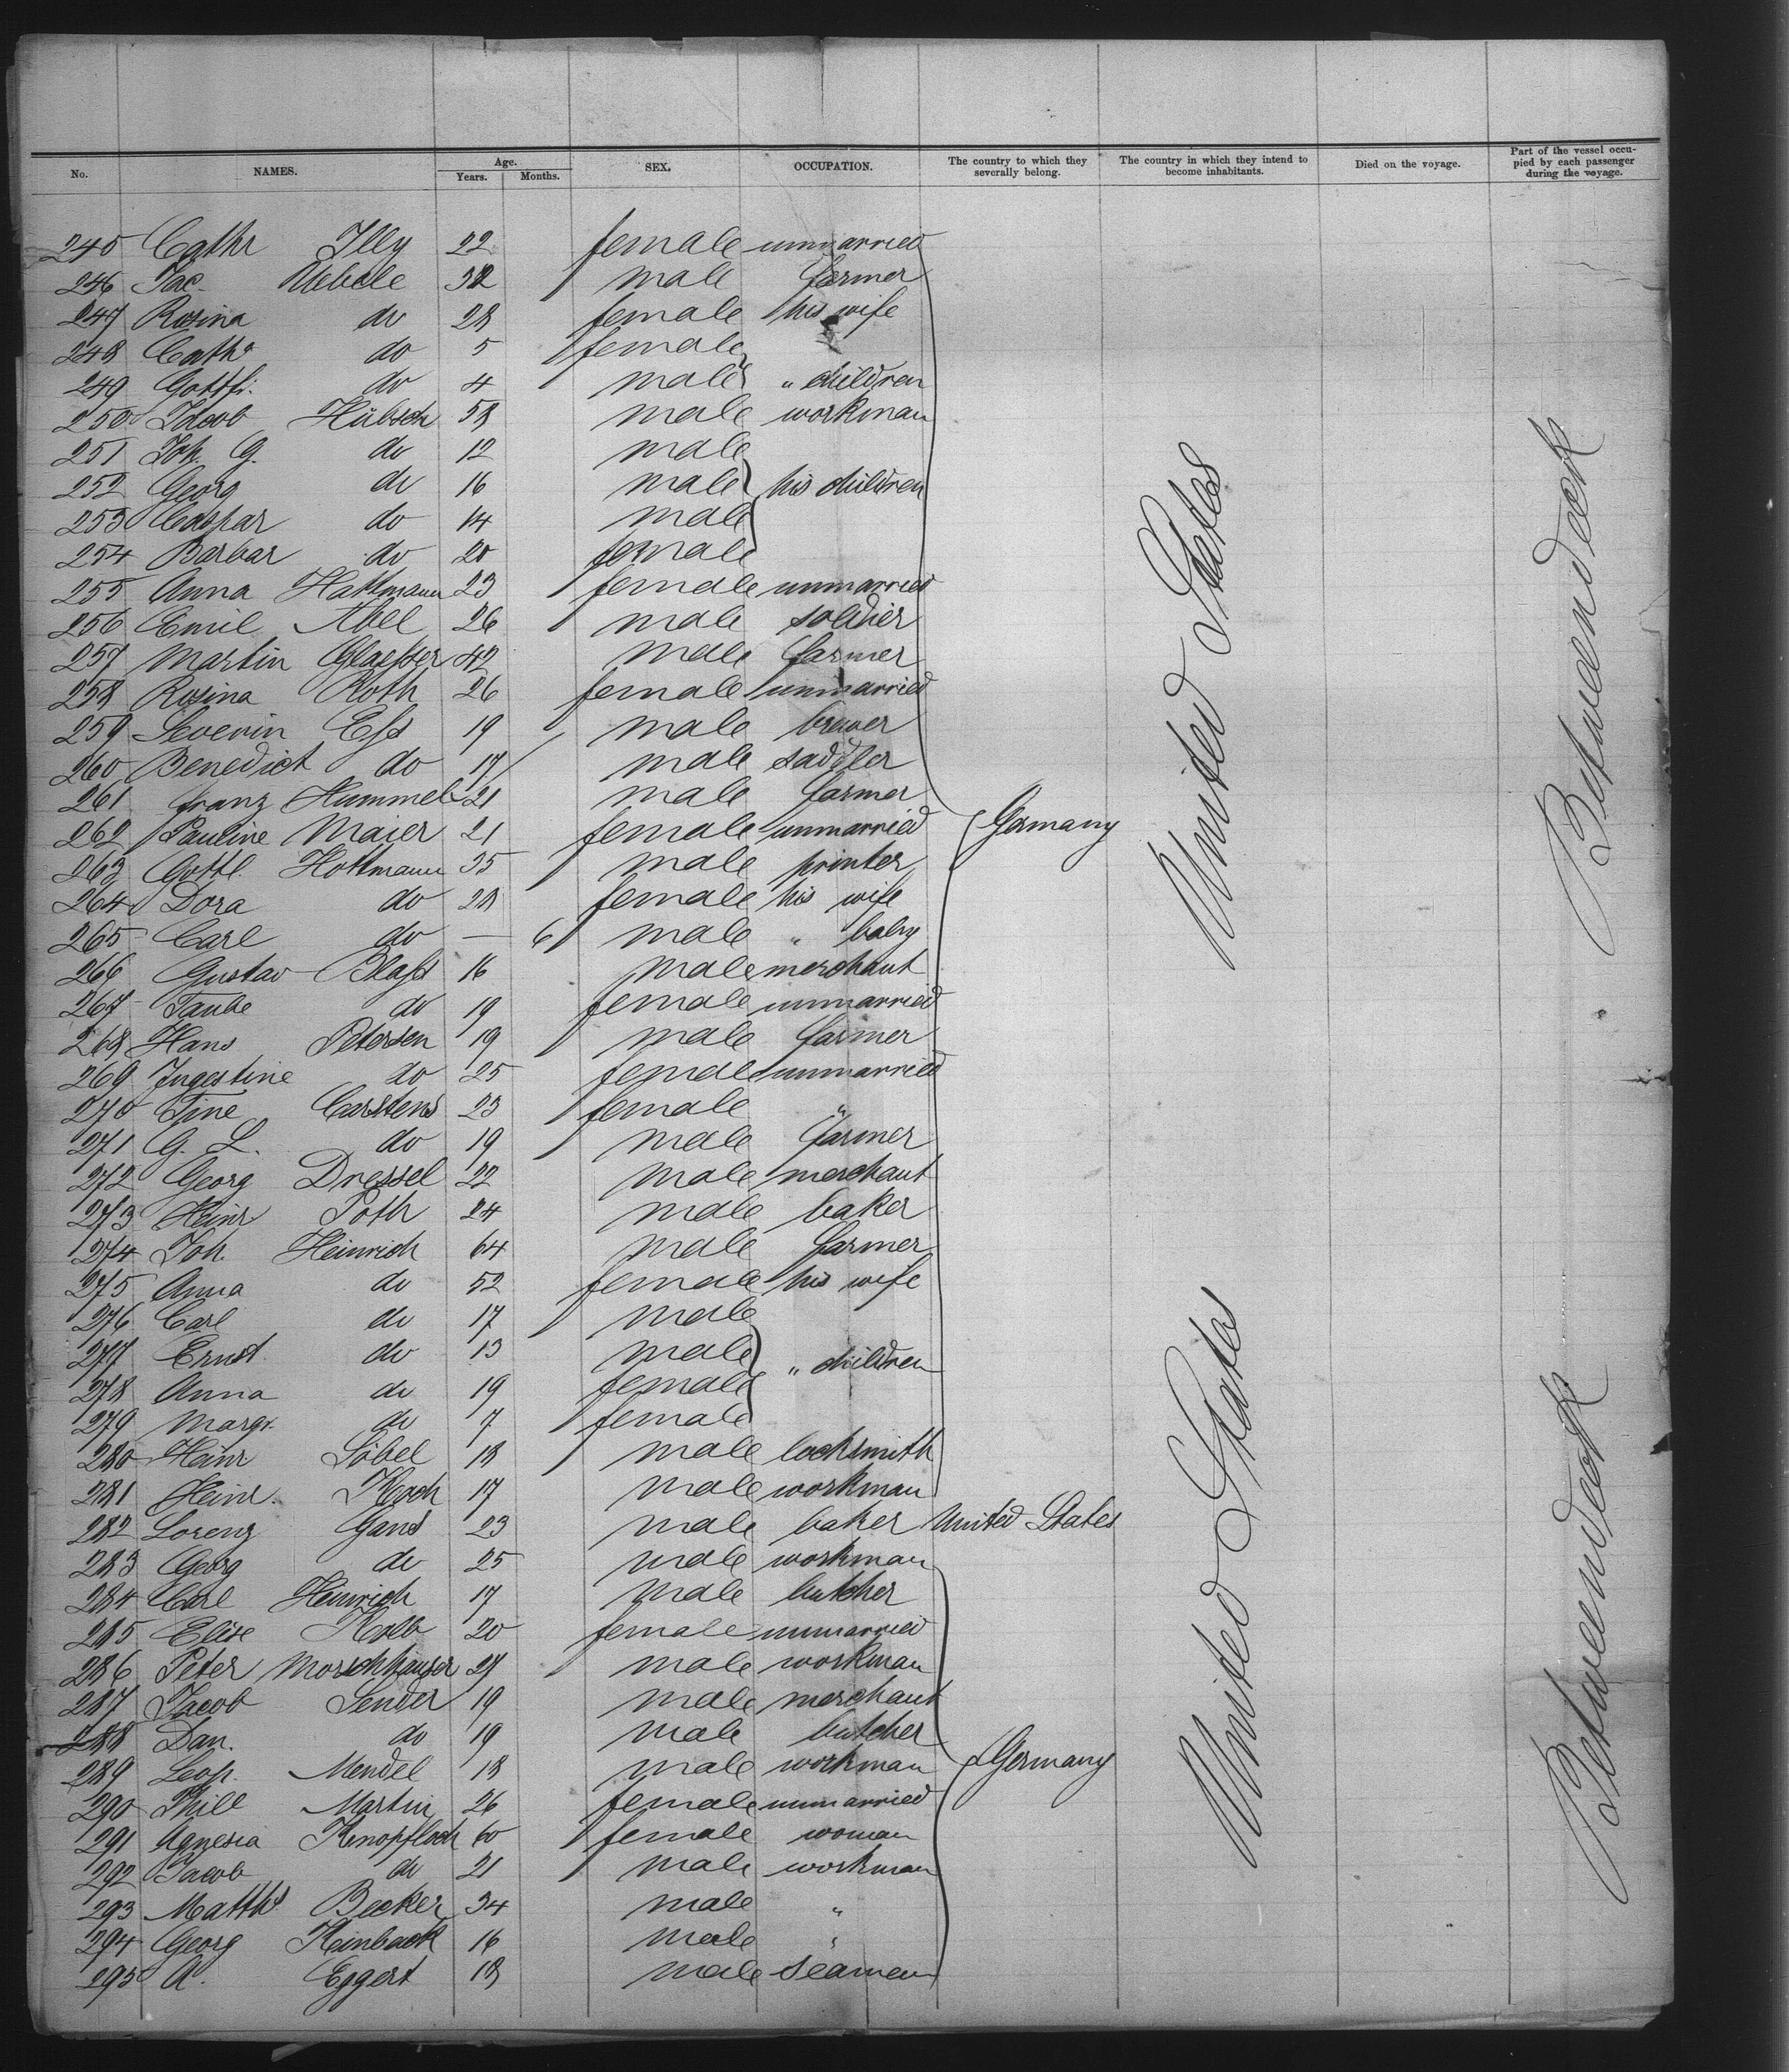 No. NAMES. Age. Years. Months. SEX. OCCUPATION. The country to which they severally belong. The country in which they intend to become inhabitants. Died on the voyage. Part of the vessel occupied by each passenger during the voyage.
245 Cathr Illy 22 female unmarried
246 Jac. Uebele 32 male farmer
247 Rosina do 28 female his wife
248 Cathr do 5 female
249 Gottfr. do 4 male " children
250 Jacob Hübsch 58 male workman
251 Joh. G. do 12 male
252 Georg do 16 male his children
253 Caspar do 14 male
254 Barbar do 20 female
255 Anna Hattmann 23 female unmarried
256 Emil Abel 26 male soldier
257 Martin Glaesser 42 male farmer
258 Rosina Roth 26 female unmarried
259 Severin Ess 19 male brewer
260 Benedict do 17 male saddler
261 Franz Hummel 21 male farmer
262 Pauline Maier 21 female unmarried Germany
263 Gottl. Hottmann 35 male printer
264 Dora do 28 female his wife
265 Carl do — 6 male " baby
266 Gustav Blass 16 male merchant
267 Taube do 19 female unmarried
268 Hans Petersen 19 male farmer
269 Ingestine do 25 female unmarried
270 Tine Carstens 23 female "
271 G. L. do 19 male farmer
272 Georg Dressel 22 male merchant
273 Heinr Poth 24 male baker
274 Joh. Heinrich 64 male farmer
275 Anna do 52 female his wife
276 Carl do 17 male
277 Ernst do 13 male " children
278 Anna do 19 female
279 Margr. do 7 female
280 Heinr Löbel 18 male locksmith
281 Heinr. Koch 17 male workman
282 Lorenz Gans 23 male baker United States
283 Georg do 25 male workman
284 Carl Heinrich 17 male butcher
285 Elise Kolb 20 female unmarried
286 Peter Morschhäuser 27 male workman
287 Jacob Sender 19 male merchant
288 Dan. do 19 male butcher
289 Leop. Mendel 18 male workman Germany
290 Phill Martin 26 female unmarried
291 Agnesia Knopfloch 60 female woman
292 Jacob do 21 male workman
293 Matths Becker 34 male "
294 Georg Keinback 16 male "
295 A. Eggert 18 male seaman
United States
United States
Betweendeck
Betweendeck